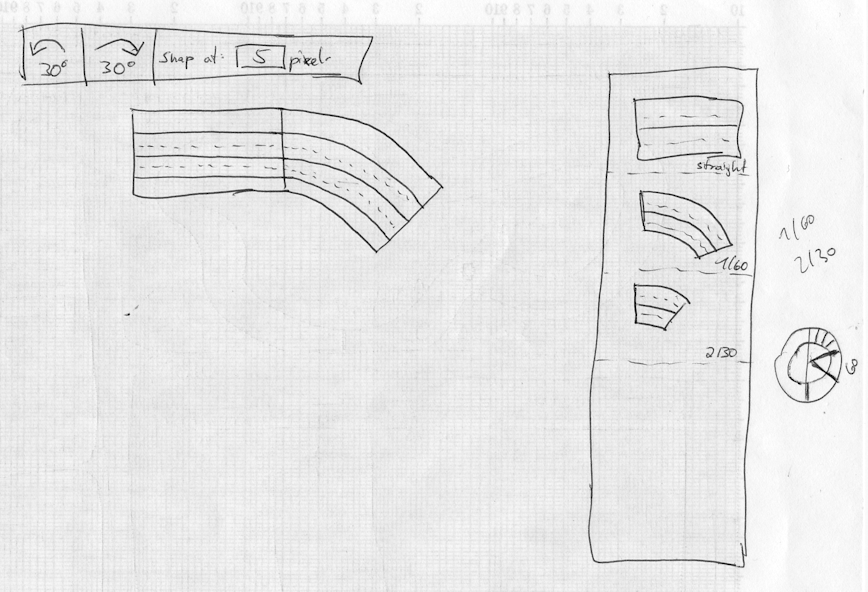 30° 30° snap at: 5 pixel
straight
1/60
2/30
1/60
2/30